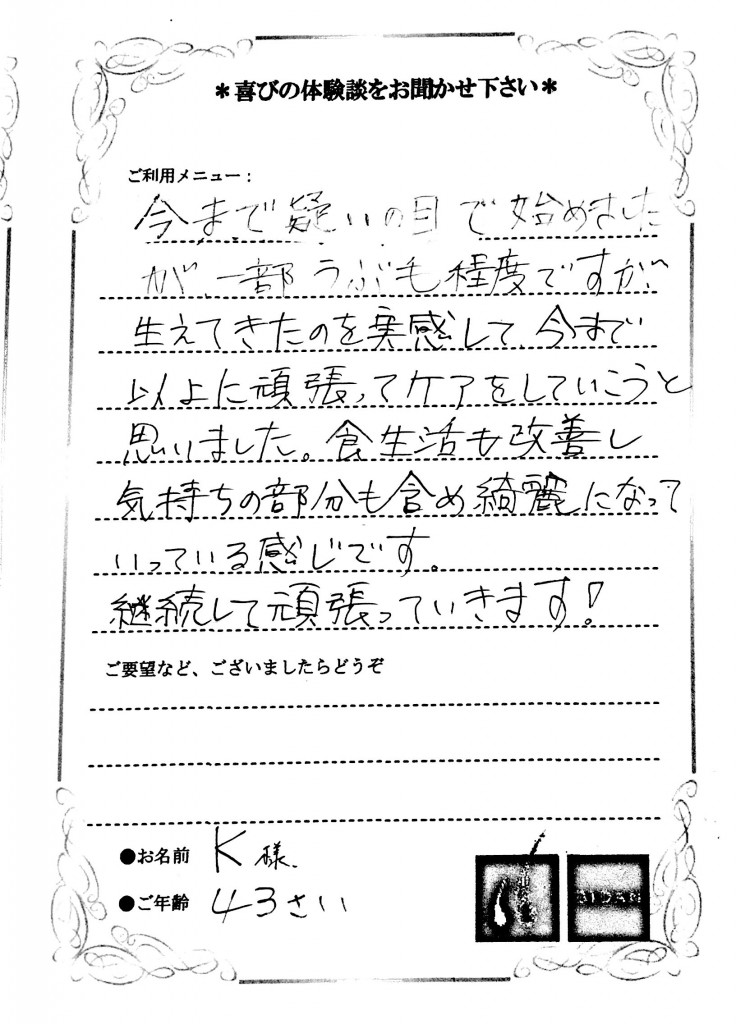 ＊喜びの体験談をお聞かせ下さい＊
ご利用メニュー：
今まで疑いの目で始めました
が、一部うぶも程度ですが、
生えてきたのを実感して、今まで
以上に頑張ってケアをしていこうと
思いました。食生活も改善し
気持ちの部分も含め綺麗になって
いっている感じです。
継続して頑張っていきます！
ご要望など、ございましたらどうぞ
●お名前 K様.
●ご年齢 43さい